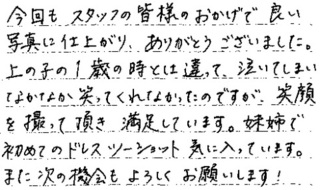 今回も スタッフの皆様のおかげで 良い
写真に仕上がり、ありがとうございました。
上の子の1歳の時とは違って、泣いてしまい
なかなか笑ってくれなかったのですが、笑顔
を撮って頂き 満足しています。姉妹で
初めてのドレスツーショット 気に入っています。
また次の機会も よろしくお願いします!